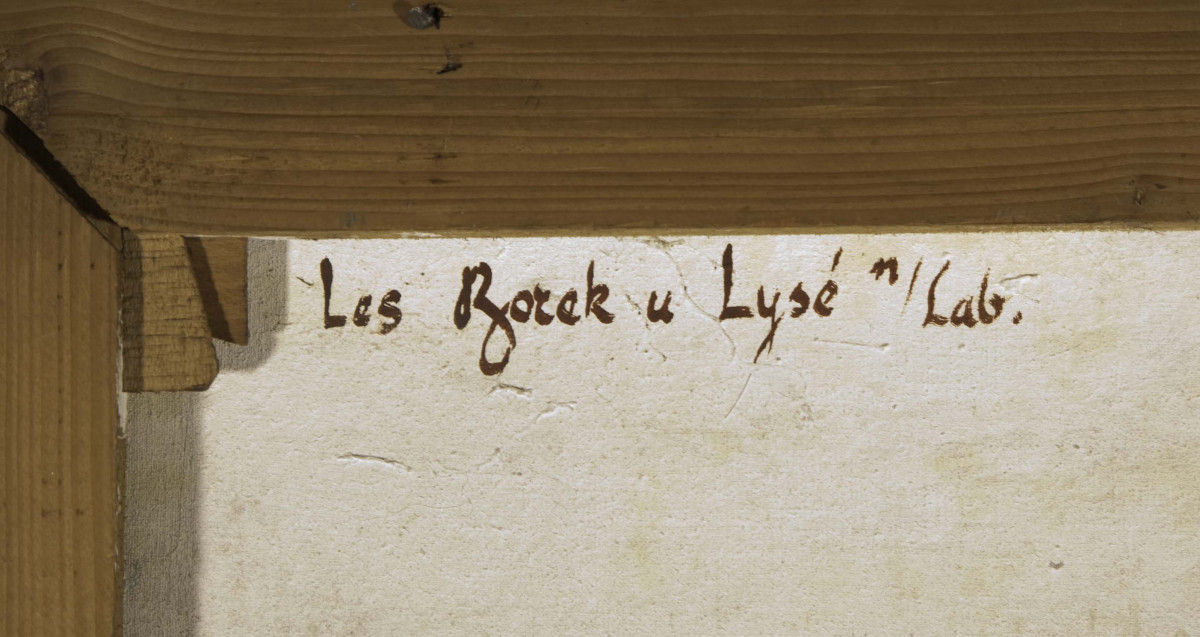 Les Borek u Lysé n/Lab.